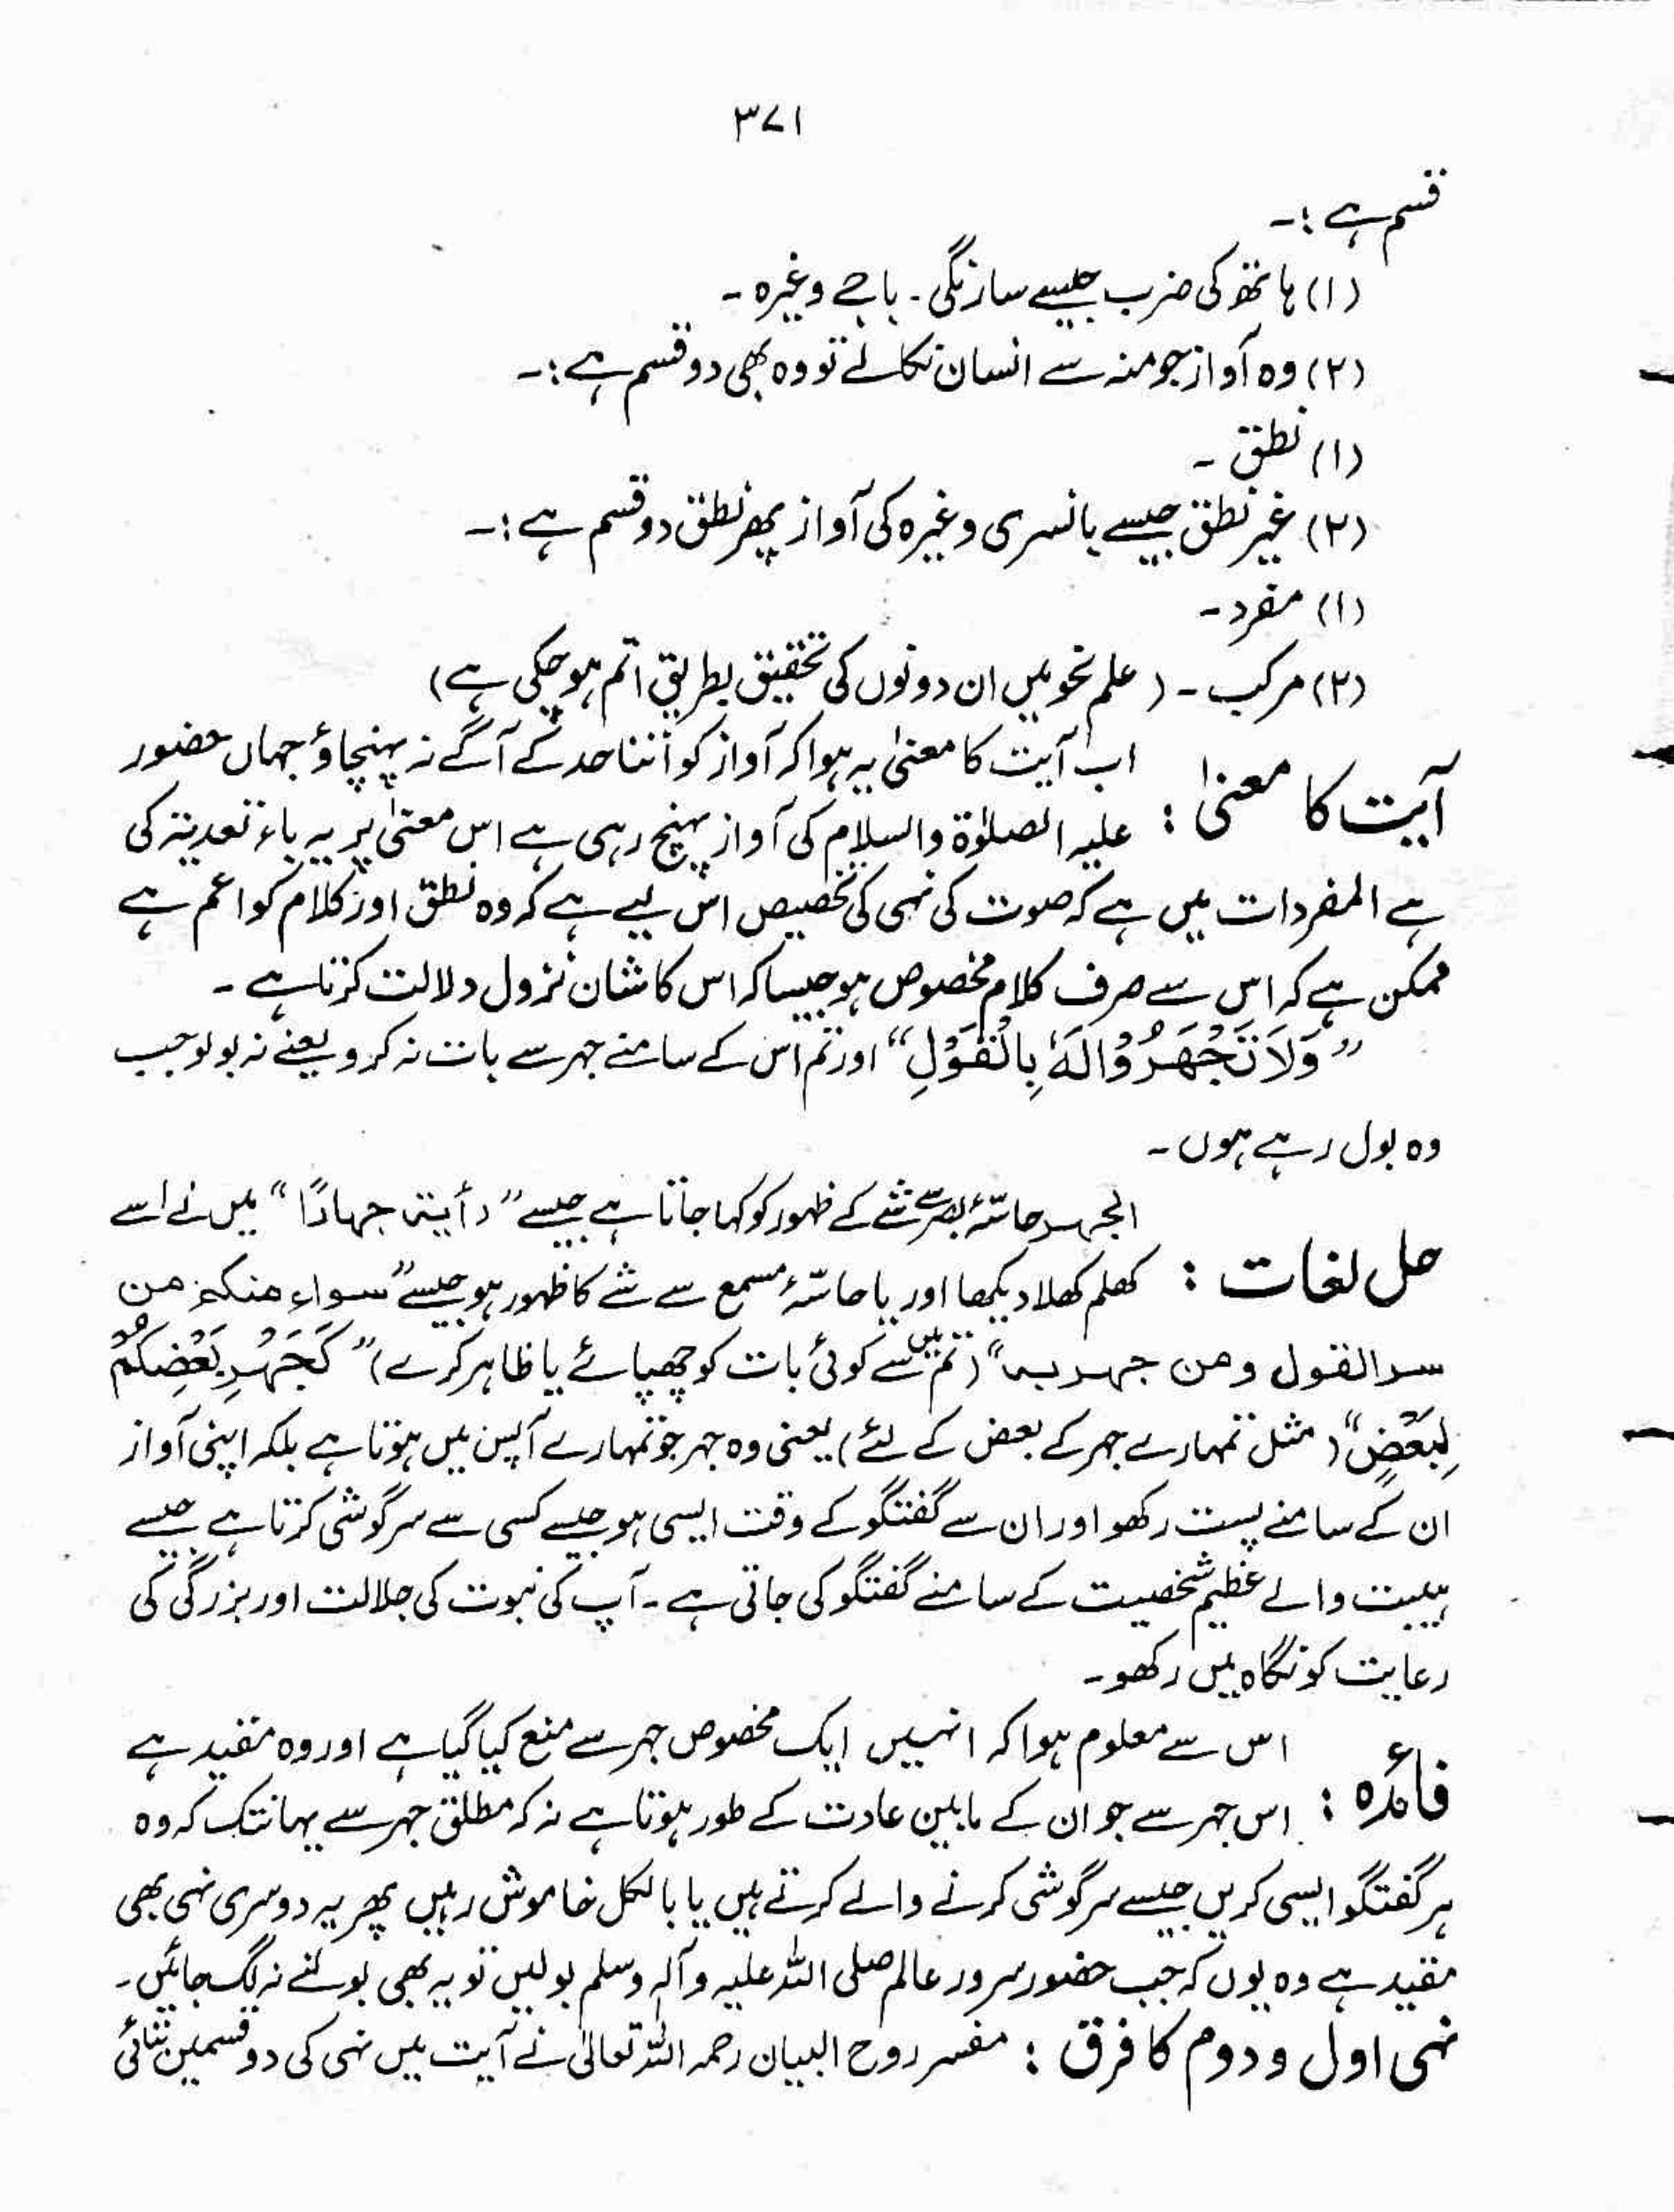 ۳۷۱
قسم ہے :۔
(۱) ہاتھ کی ضرب جیسے سارنگی۔ باجے وغیرہ ۔
(۲) وہ آواز جو منہ سے انسان نکالے تو وہ بھی دو قسم ہے :۔
(۱) نطق ۔
(۲) غیر نطق جیسے بانسری وغیرہ کی آواز پھر نطق دو قسم ہے :۔
(۱) مفرد ۔
(۲) مرکب ۔ ( علم نحو میں ان دونوں کی تحقیق بطریق اتم ہو چکی ہے )
آیت کا معنیٰ : اب آیت کا معنیٰ یہ ہوا کہ آواز کو اتنا حد کے آگے نہ پہنچاؤ جہاں حضور
علیہ الصلوٰۃ والسلام کی آواز پہنچ رہی ہے اس معنیٰ پر یہ باء تعدیتہ کی
ہے المفردات میں ہے کہ صوت کی نہی کی تخصیص اس لیے ہے کہ وہ نطق اور کلام کو اعم ہے
ممکن ہے کہ اس سے صرف کلام مخصوص ہو جیسا کہ اس کا شان نزول دلالت کرتا ہے ۔
” وَلَا تَجْهَرُوْا لَهٗ بِالْقَوْلِ “ اور تم اس کے سامنے جہر سے بات نہ کرو یعنے نہ بولو جب
وہ بول رہے ہوں ۔
حل لغات : الجہر حاسّۂ بصر سے شے کے ظہور کو کہا جاتا ہے جیسے ” رأیتہ جہارًا “ میں نے اسے
کھلم کھلا دیکھا اور یا حاسّۂ سمع سے شے کا ظہور ہو جیسے ” سواء منکم من
سر القول ومن جہر بہ “ ( تم میں سے کوئی بات کو چھپائے یا ظاہر کرے ) ” كَجَهْرِ بَعْضِكُمْ
لِبَعْضٍ “ ( مثل تمہارے جہر کے بعض کے لئے ) یعنی وہ جہر جو تمہارے آپس میں ہوتا ہے بلکہ اپنی آواز
ان کے سامنے پست رکھو اور ان سے گفتگو کے وقت ایسی ہو جیسے کسی سے سرگوشی کرتا ہے جیسے
ہیبت والے عظیم شخصیت کے سامنے گفتگو کی جاتی ہے ۔ آپ کی نبوت کی جلالت اور بزرگی کی
رعایت کو نگاہ میں رکھو ۔
فائدہ : اس سے معلوم ہوا کہ انہیں ایک مخصوص جہر سے منع کیا گیا ہے اور وہ مقید ہے
اس جہر سے جو ان کے مابین عادت کے طور ہوتا ہے نہ کہ مطلق جہر سے یہانتک کہ وہ
ہر گفتگو ایسی کریں جیسے سرگوشی کرنے والے کرتے ہیں یا بالکل خاموش رہیں پھر یہ دوسری نہی بھی
مقید ہے وہ یوں کہ جب حضور سرور عالم صلی اللہ علیہ وآلہ وسلم بولیں تو یہ بھی بولنے نہ لگ جائیں ۔
نہی اول و دوم کا فرق : مفسر روح البیان رحمہ اللہ تعالیٰ نے آیت میں نہی کی دو قسمیں بتائی